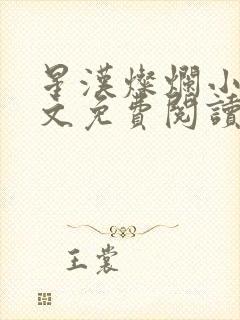 星漢燦爛小
文免費閱讀
王裳